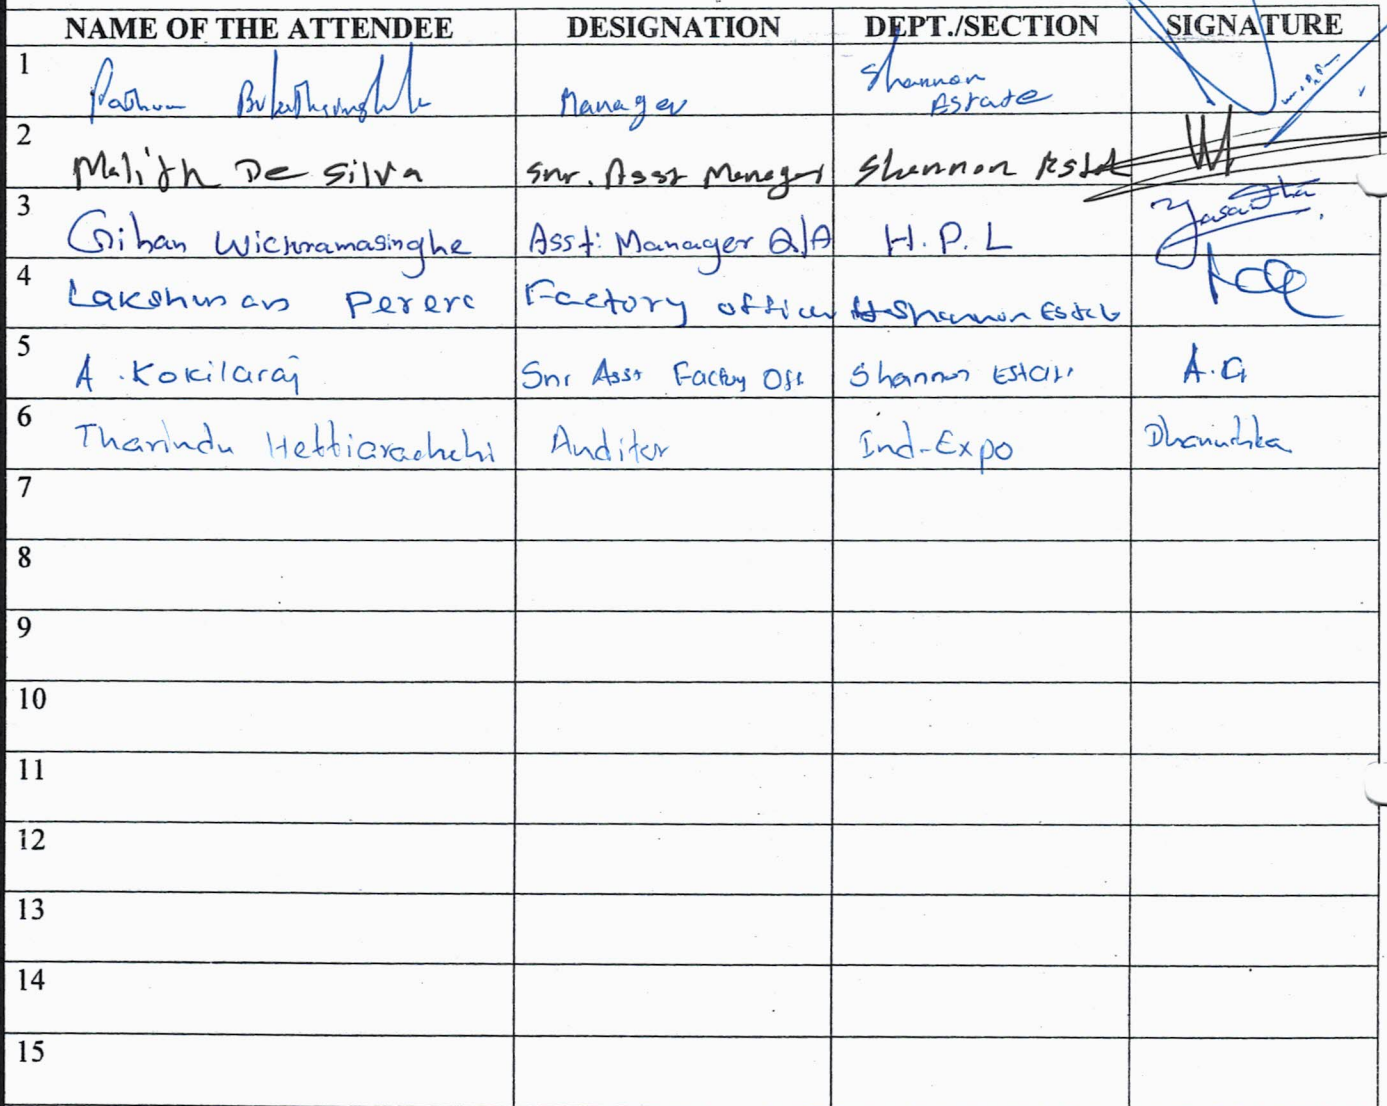 NAME OF THE ATTENDEE DESIGNATION DEPT./SECTION SIGNATURE
1 Manager Shannon
Estate
2 Malith De Silva Snr. Asst Manager Shannon Estat
3 Gihan Wickramasinghe Asst: Manager Q/A H.P.L Yasantha
4 Lakshman Perera Factory officer Shannon Estate
5 A. Kokilaraj Snr Asst Factory Off Shannon Estate A.G
6 Tharindu Hettiarachchi Auditor Ind-Expo Dhanushka
7
8
9
10
11
12
13
14
15